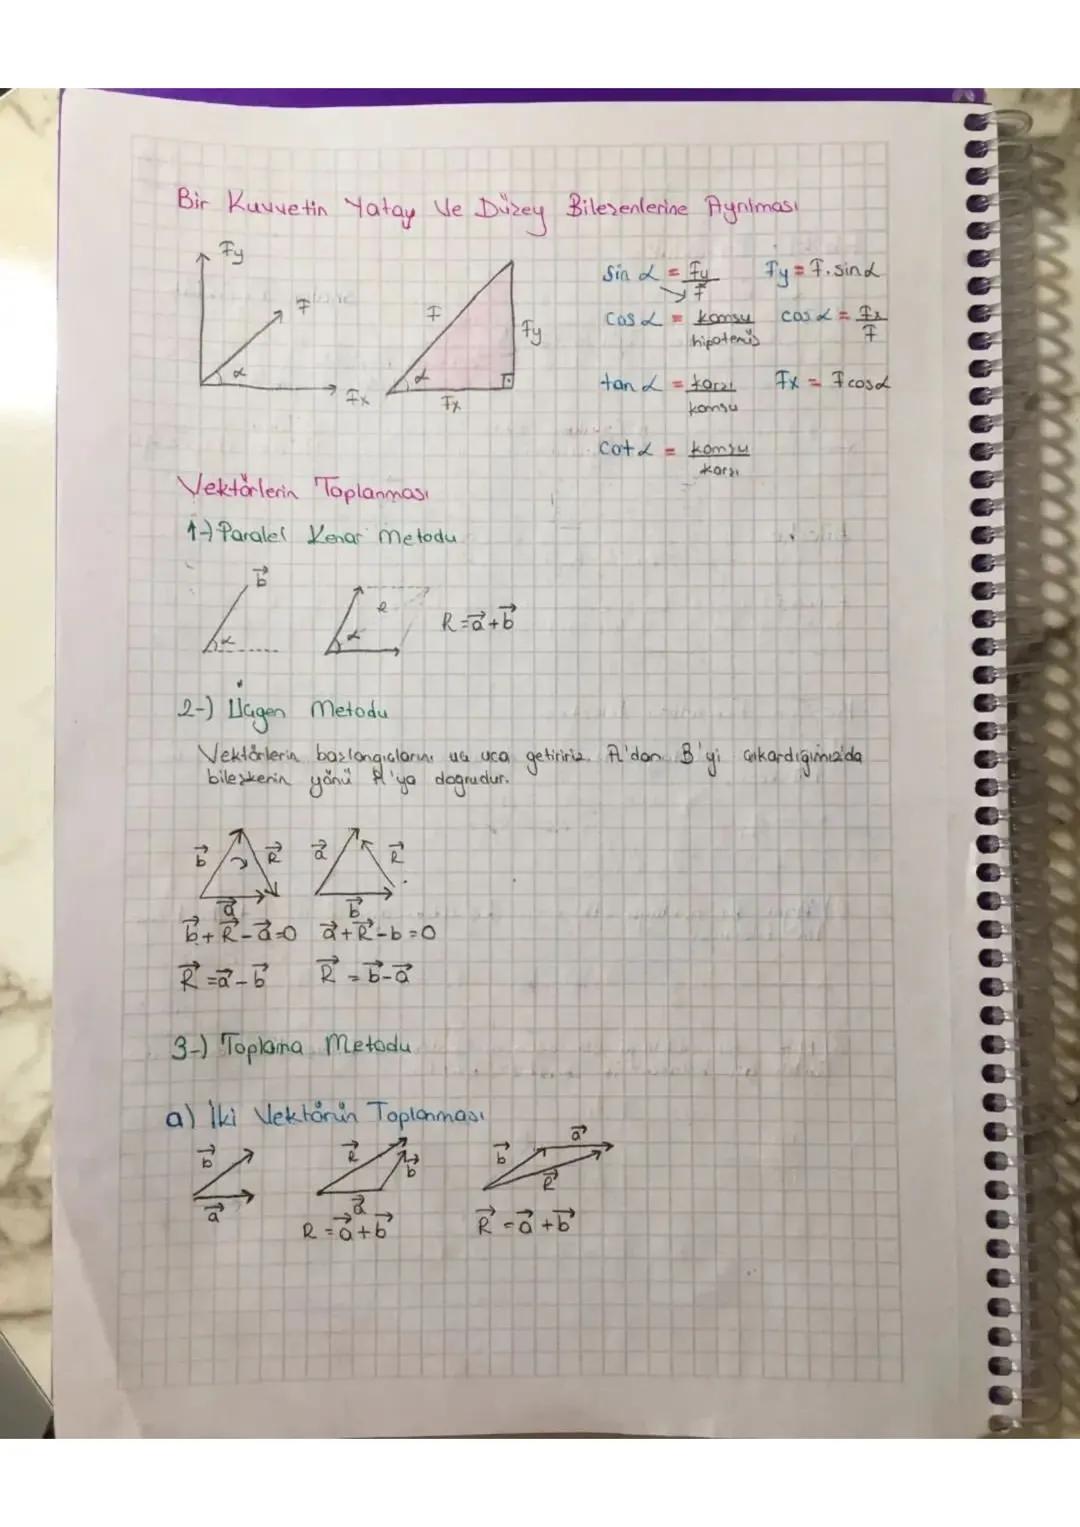 Bir Kuvvetin Yatay Ve Düzey Bileşenlerine Ayrılması
Fy
F
α
Fx
F
Fy
α
Fx
Sin α = Fy / F
Fy = F. sin α
Cos α = komşu / hipotenüs
cos α = Fx / F
tan α = karşı / komşu
Fx = F cos α
Cot α = komşu / karşı
Vektörlerin Toplanması
1-) Paralel Kenar Metodu
b⃗
α
R
α
R = a⃗ + b⃗
2-) Üçgen Metodu
Vektörlerin başlangıçlarını uç uca getiririz. A'dan B'yi çıkardığımız'da
bileşkenin yönü A'ya doğrudur.
b⃗
R⃗
a⃗
a⃗
R⃗
b⃗
b⃗ + R⃗ - a⃗ = 0
a⃗ + R⃗ - b = 0
R⃗ = a⃗ - b⃗
R⃗ = b⃗ - a⃗
3-) Toplama Metodu
a) İki Vektörün Toplanması
b⃗
a⃗
R⃗
b⃗
a⃗
R = a⃗ + b⃗
b⃗
a⃗
R⃗
R⃗ = a⃗ + b⃗